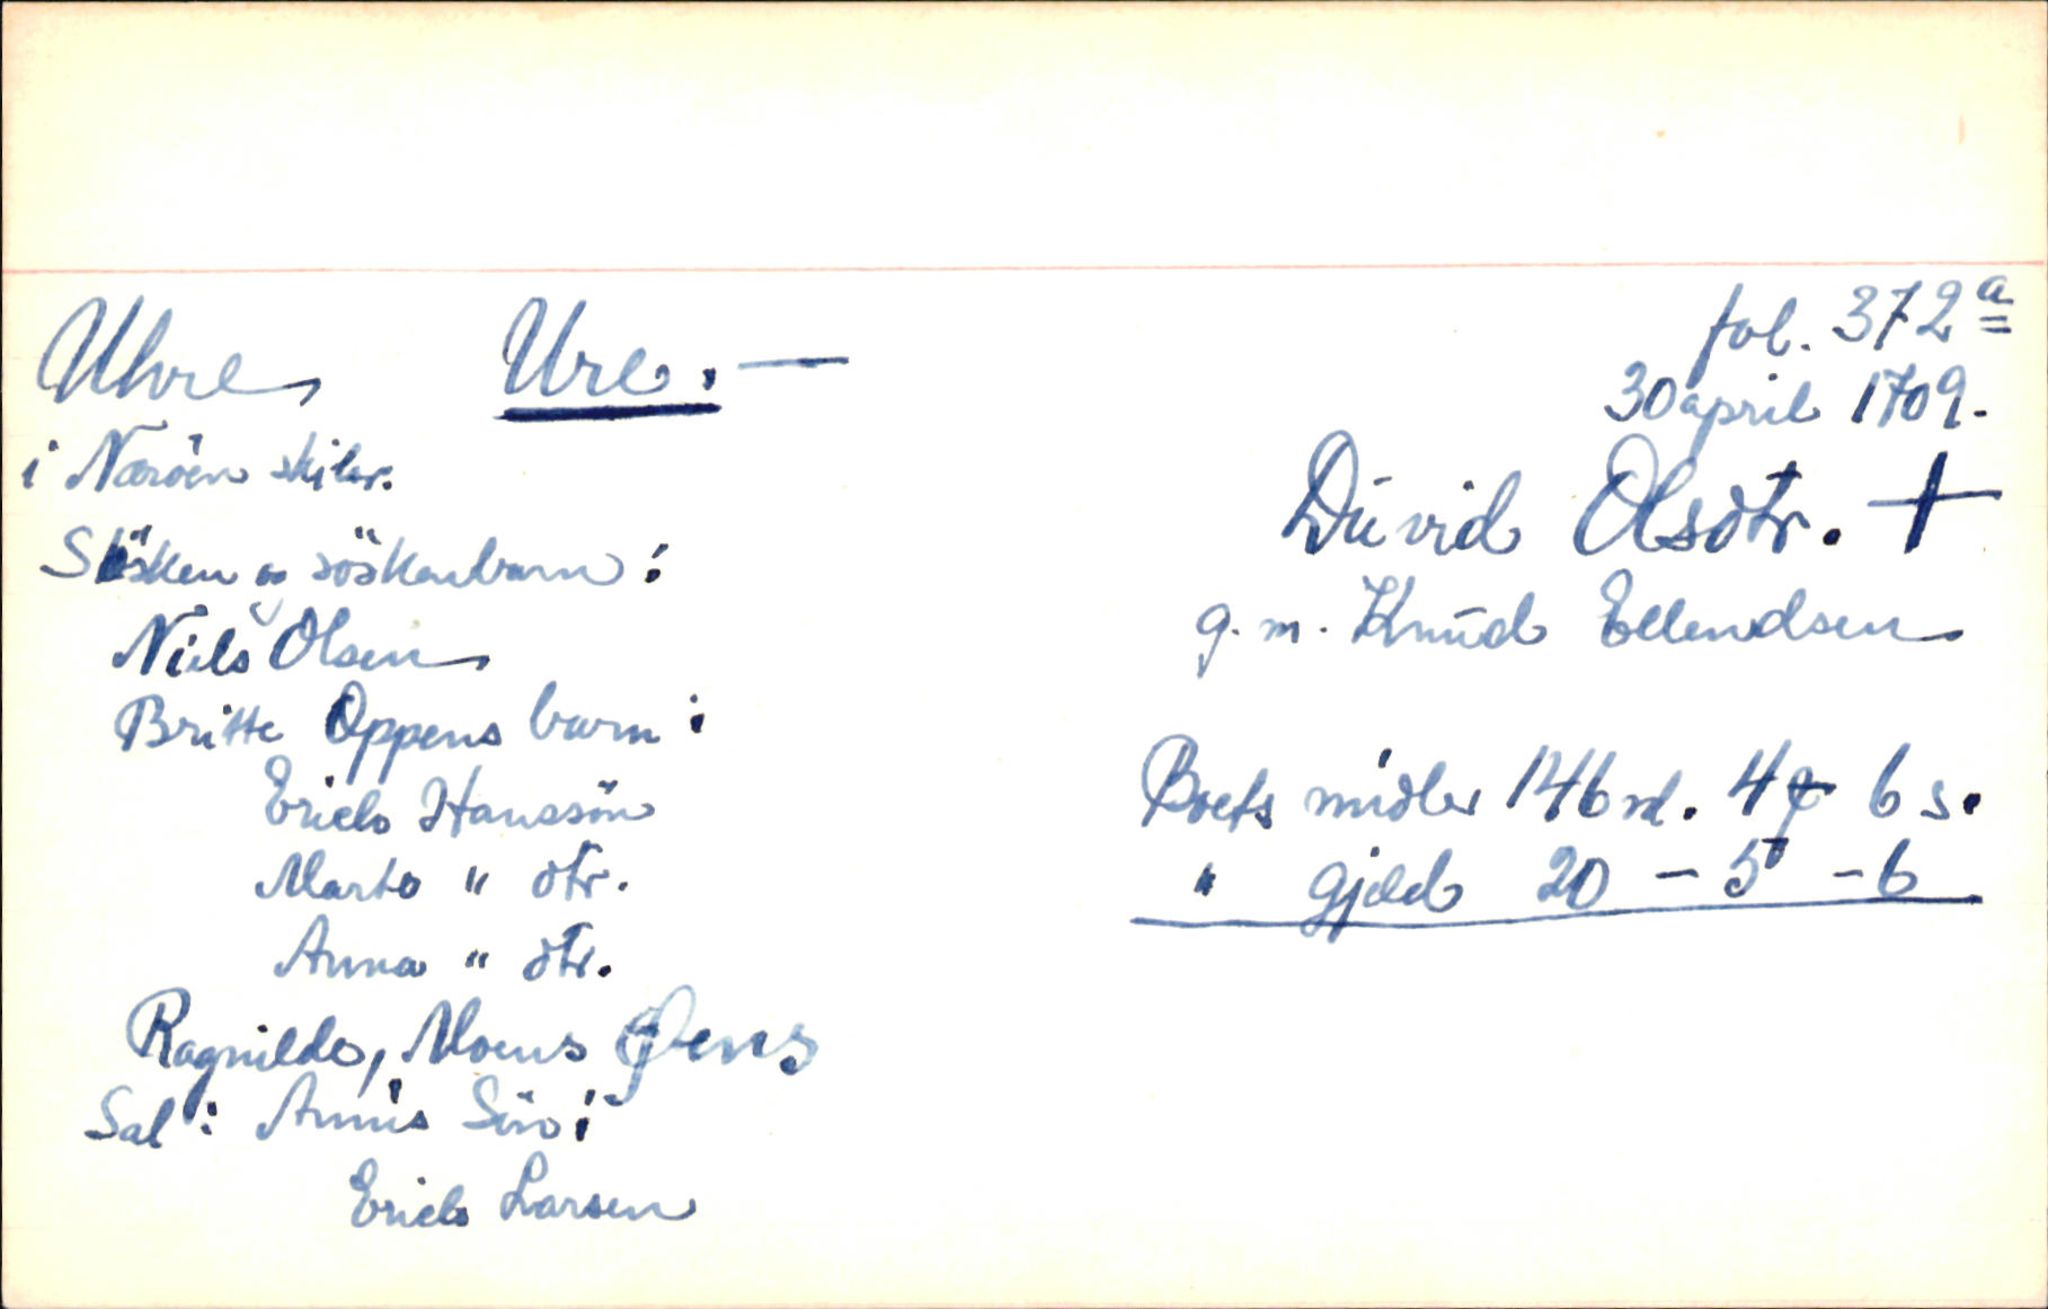 Uhre, Ure. —
i Næröen skibr.
Sösken og söskenbarn:
Niels Olsen
Britte Oppens barn:
Erich Hanssön
Marte " dtr.
Anna " dtr.
Ragnilde, Moens
Sal: Annis Sön:
Erich Larsen
fol. 372 a
30 april 1709.
Düvid Olsdtr. +
g. m. Knud Ellendsen
Boets midler 146 rd. 4 6 s.
" Gjeld 20 - 5 - 6